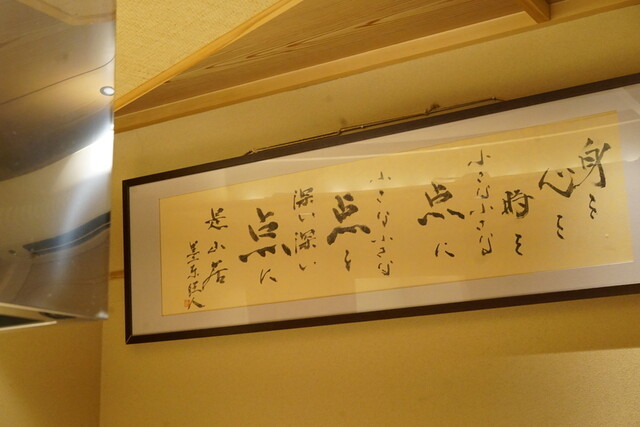 身を
心を
時を
小さな小さな
点に
小さな小さな
点を
深い深い
点に